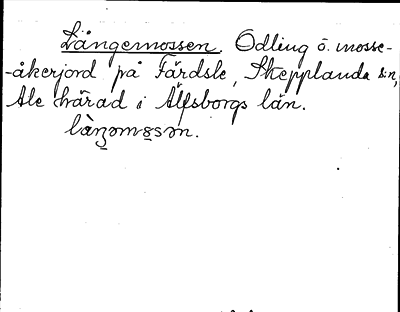 Långemossen. Odling o. mosse-
-åkerjord på Färdsle, Skepplanda s:n,
Ale härad i Älfsborgs län.
làŋəmo̱sən.